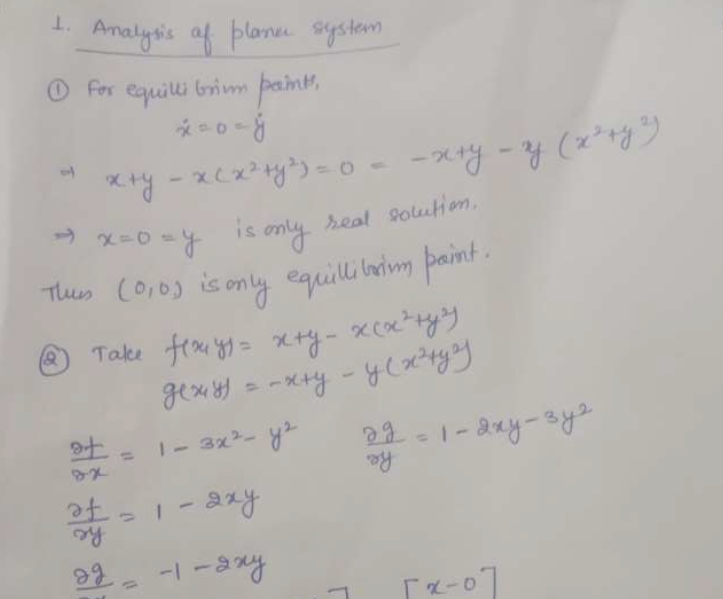 1. Analysis of planer system
① For equilibrium points,
ẋ = 0 = ẏ
⇒ x+y - x(x²+y²) = 0 = -x+y - y(x²+y²)
⇒ x=0=y is only real solution.
Thus (0,0) is only equillibrium point.
② Take f(x,y) = x+y - x(x²+y²)
g(x,y) = -x+y - y(x²+y²)
∂f/∂x = 1 - 3x² - y² ∂g/∂y = 1 - 2xy - 3y²
∂f/∂y = 1 - 2xy
∂g = -1 - 2xy
[x-0]